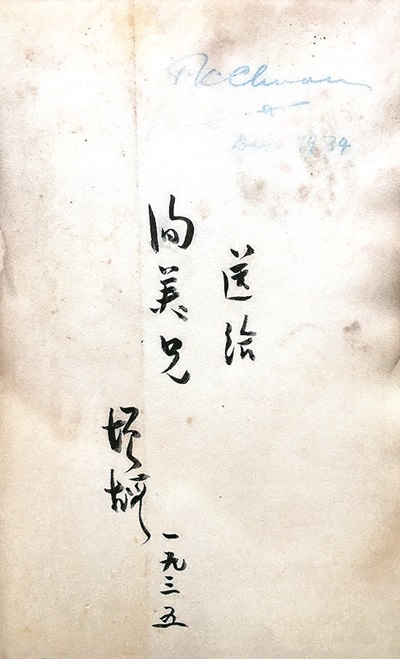 TK Chuan
Dec 1934
送给
洵美兄
增嘏
一九三五